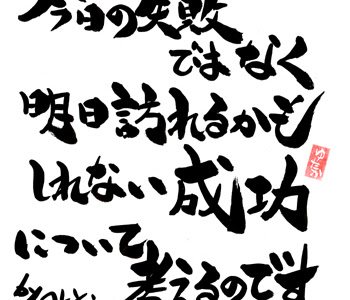 今日の失敗
ではなく
明日訪れるかも
しれない成功
について
考えるのです
ゆたか